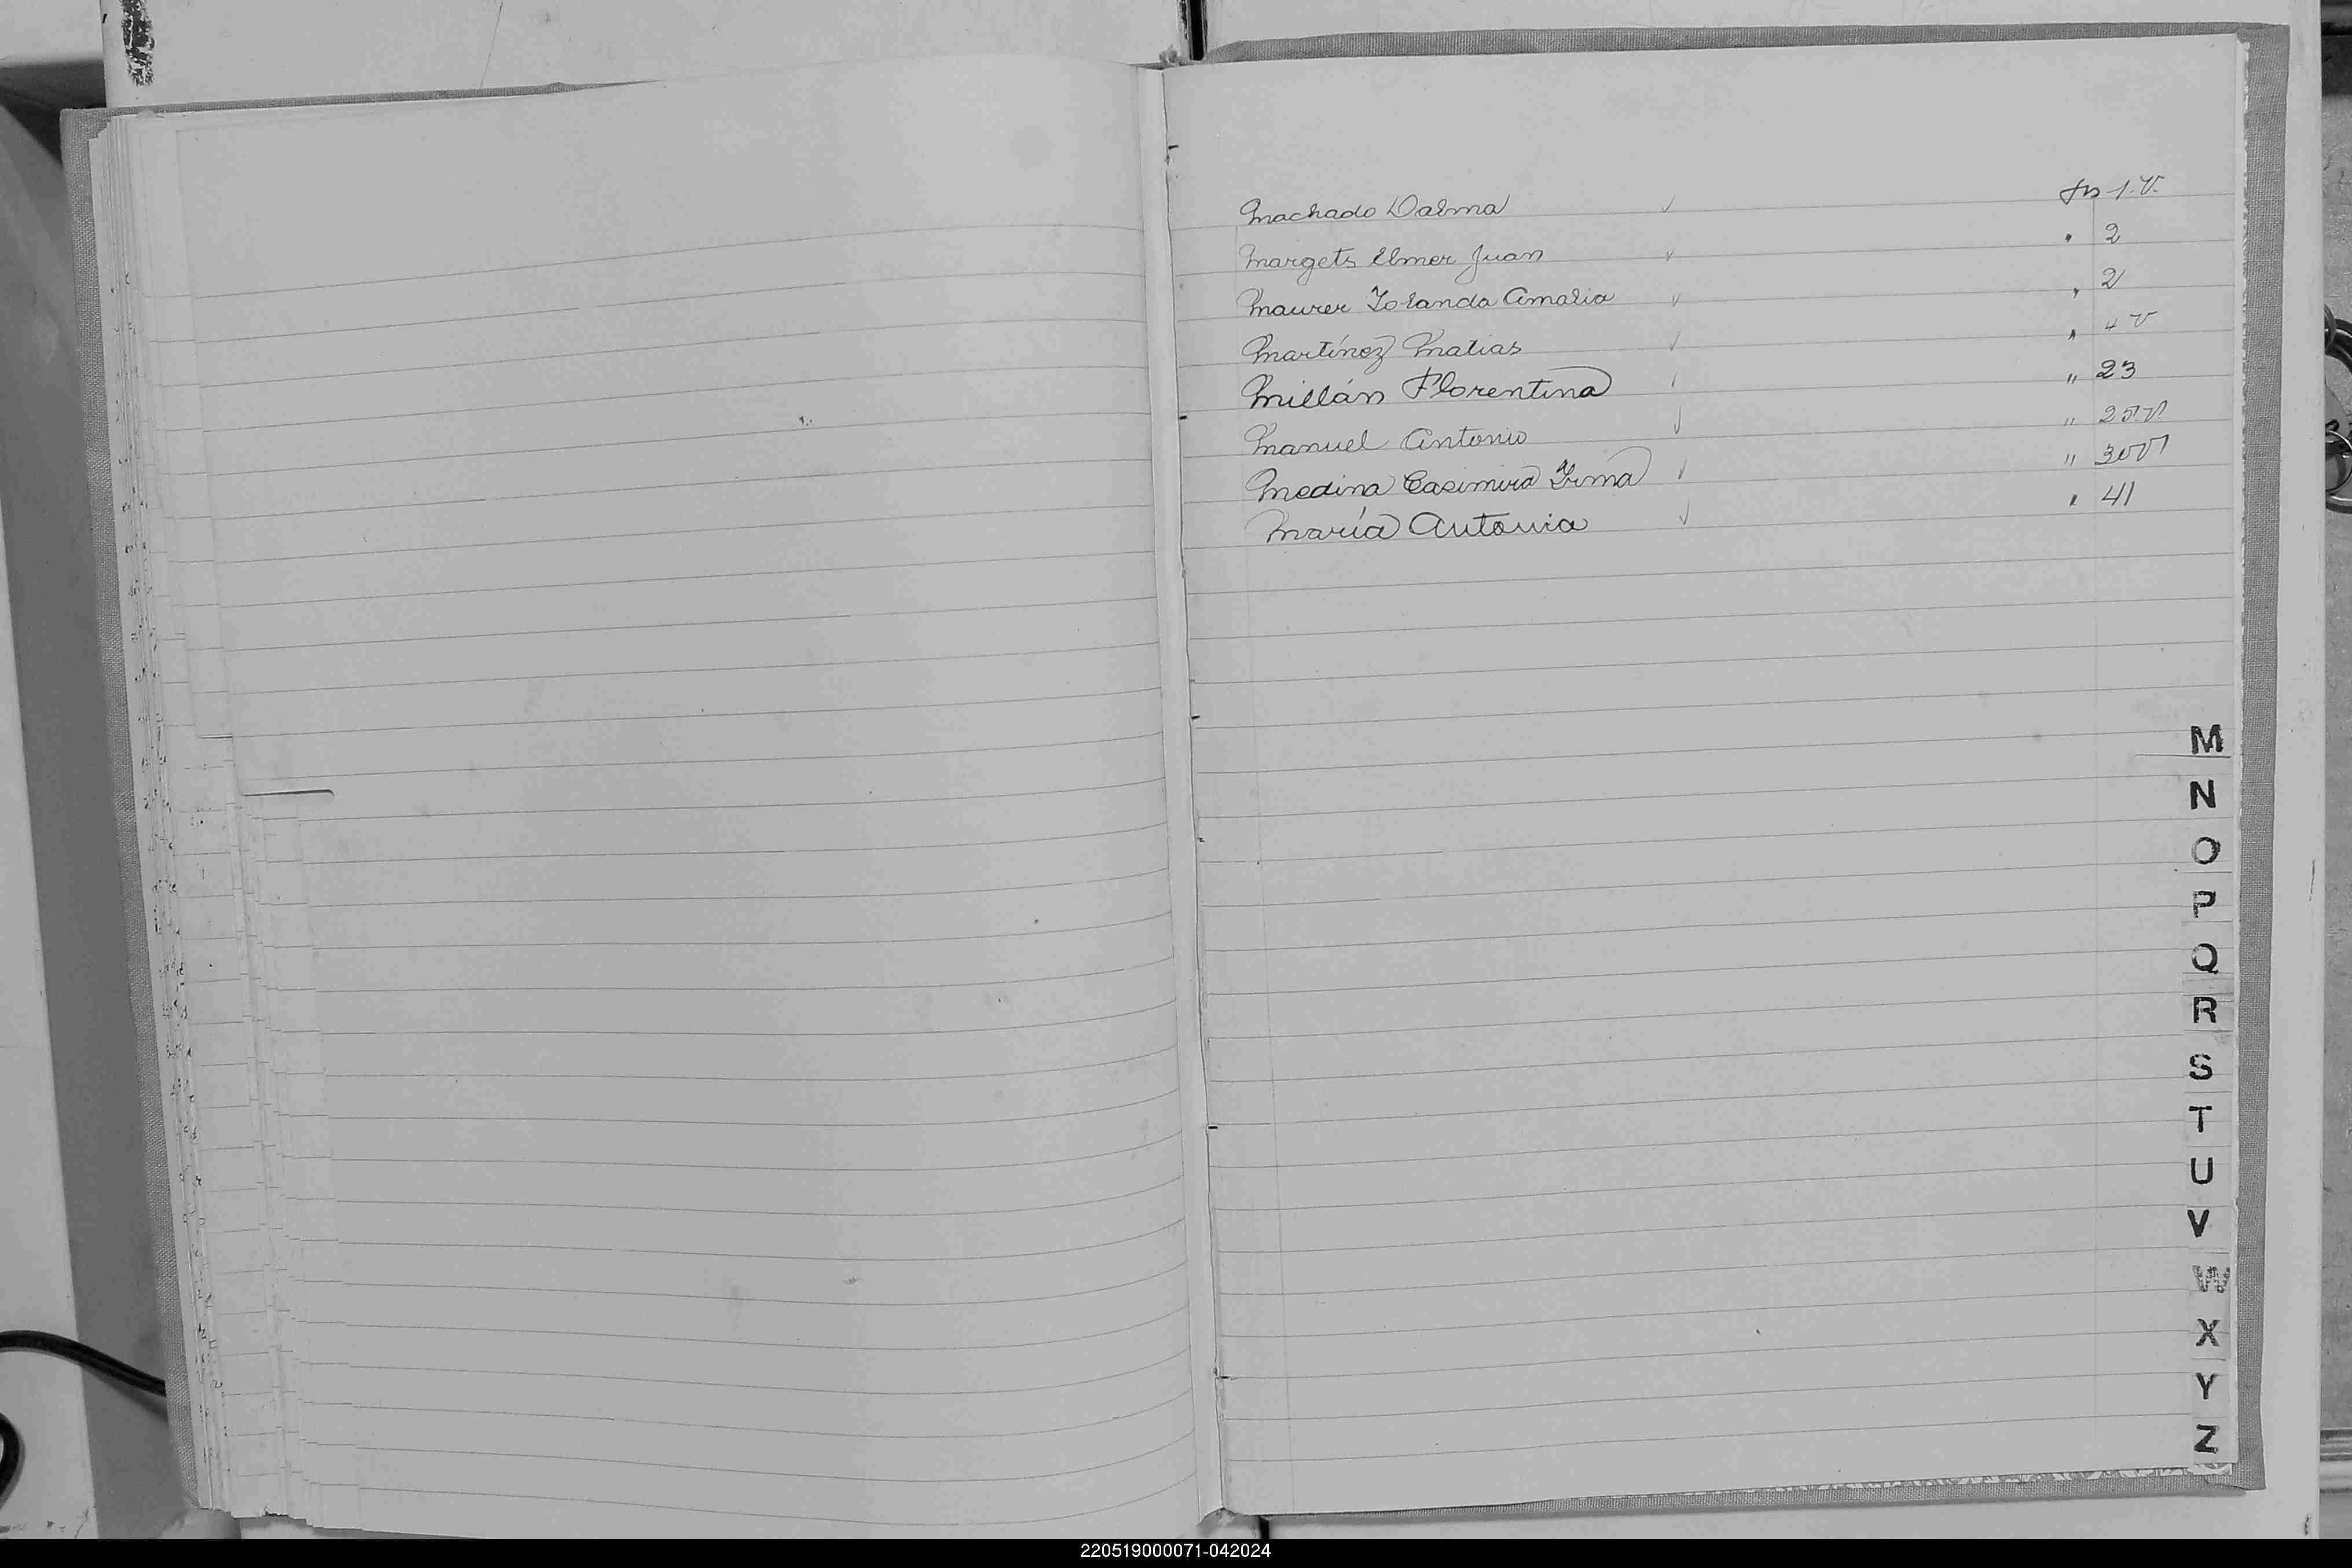 Machado Dalma √ fs 1.V.
Margets Elmer Juan √ " 2
Maurer Iolanda Amalia √ " 2
Martínez Matias √ " 4 V
Millán Florentina √ " 23
Manuel Antonio √ " 25.V
Medina Casimira Irma √ " 30V
María Antonia √ " 41
M
N
O
P
Q
R
S
T
U
V
W
X
Y
Z
220519000071-042024